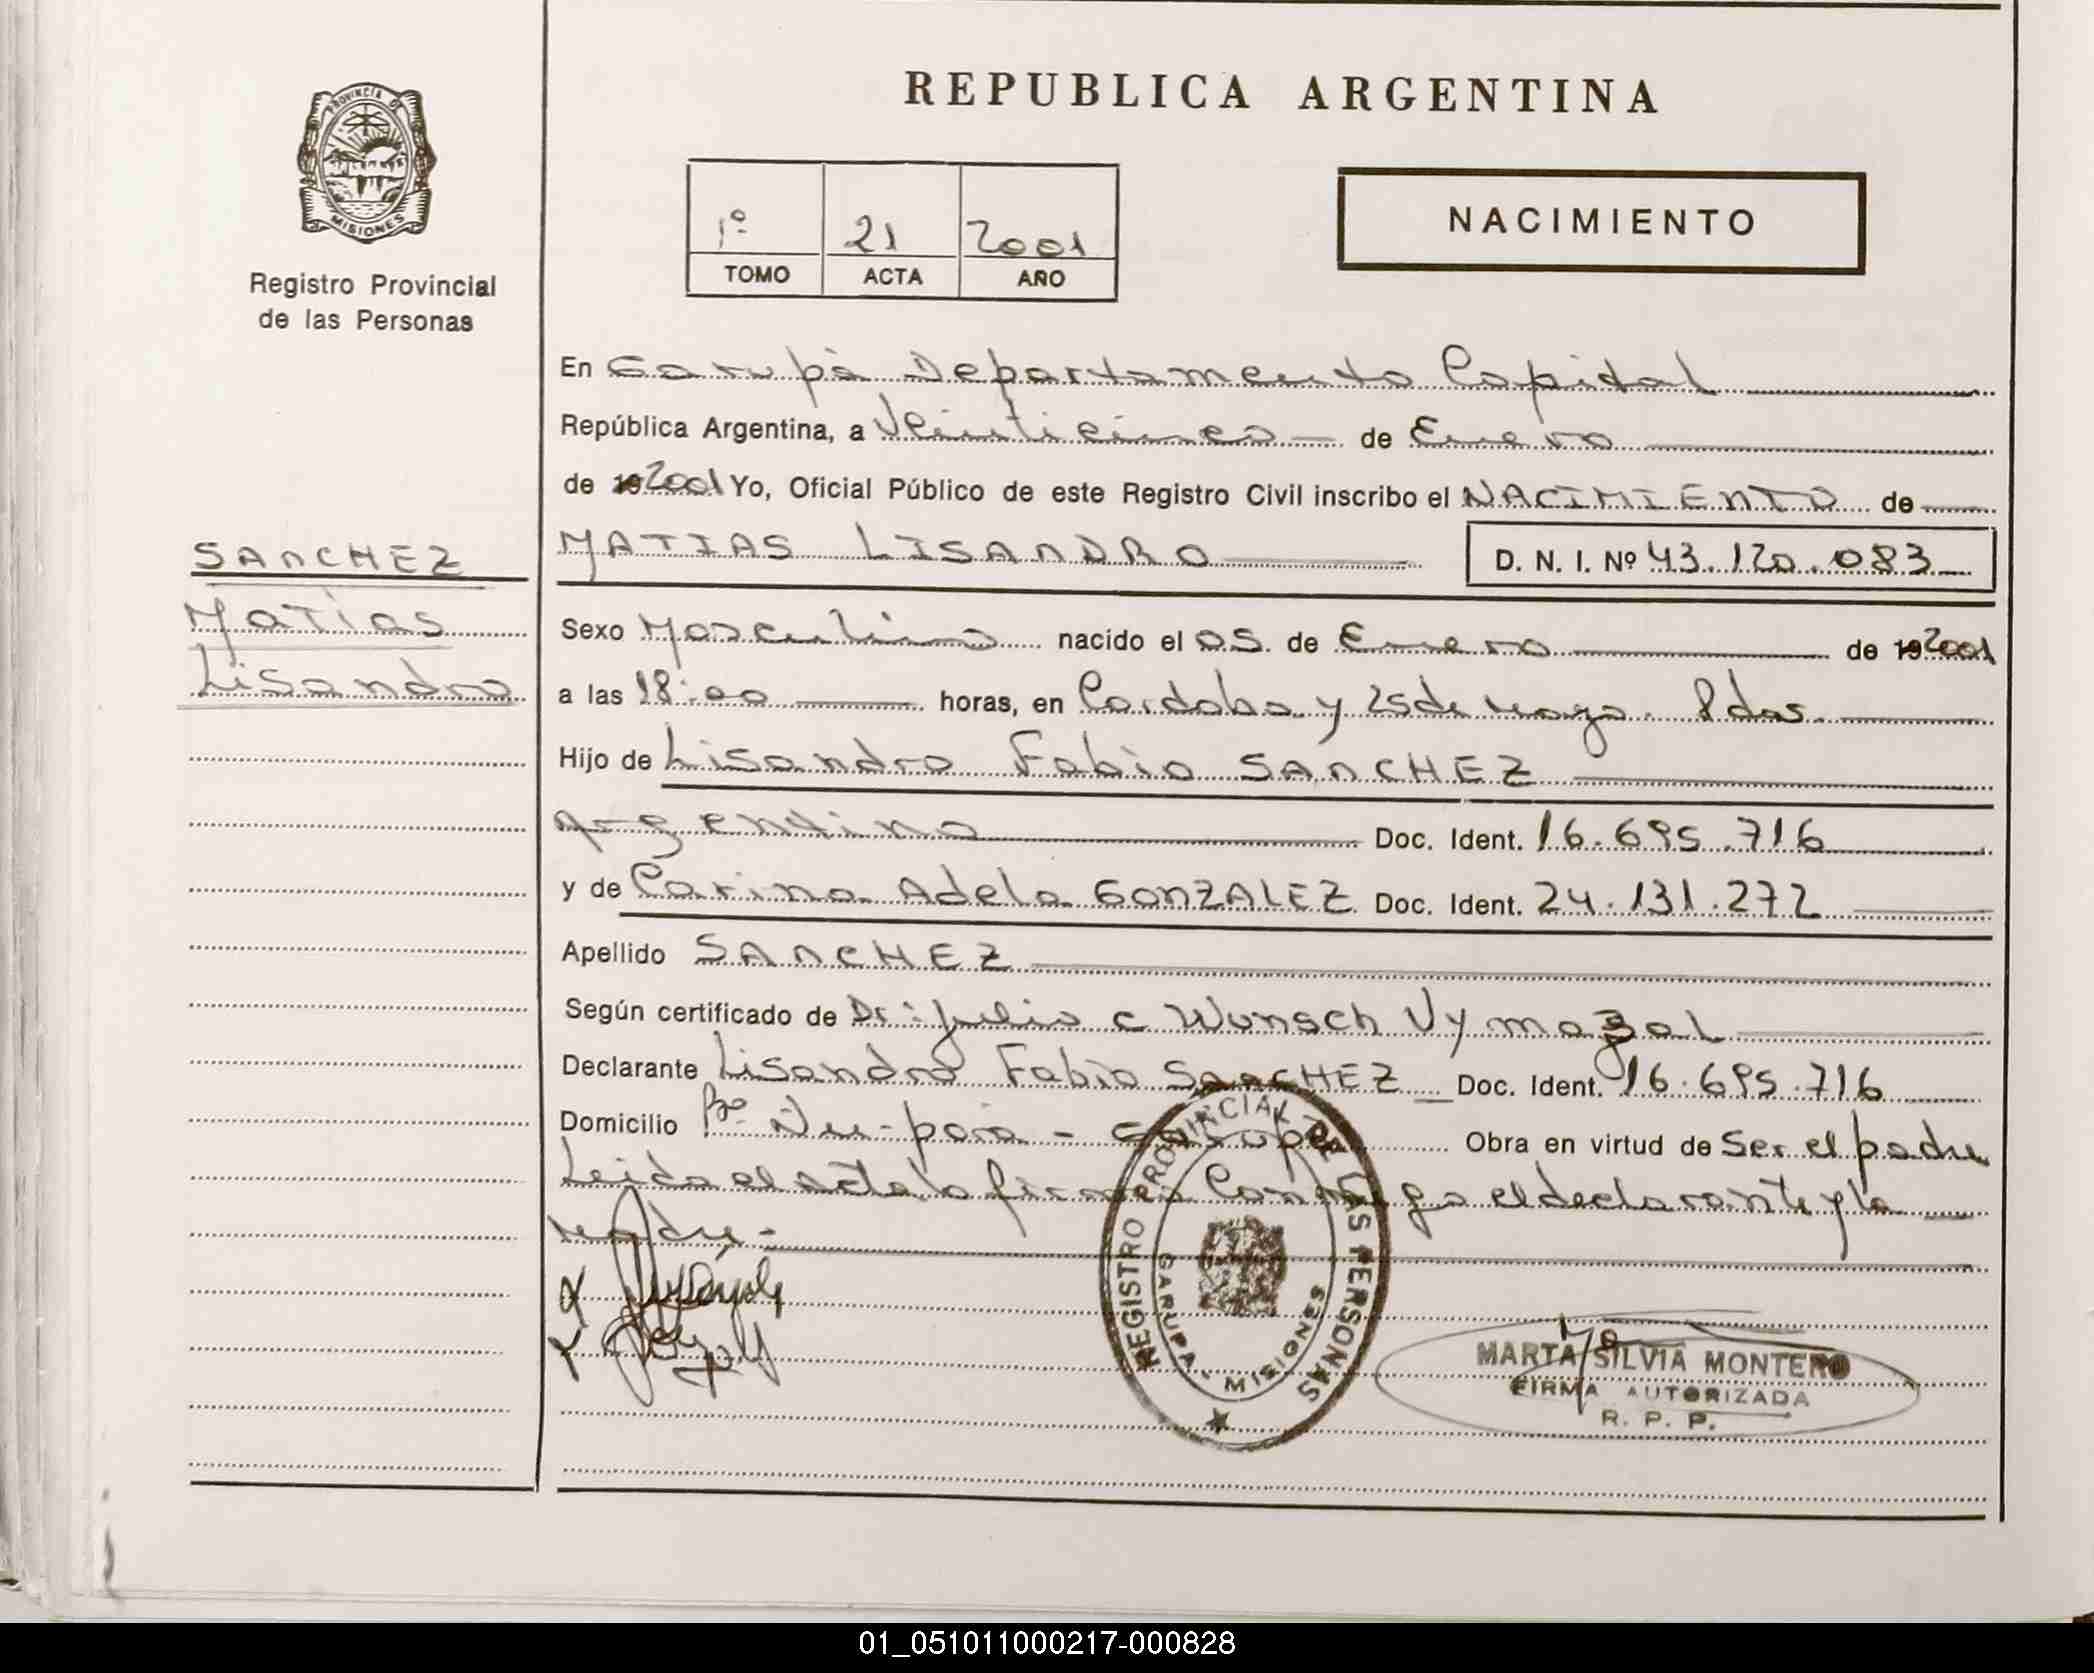 REPUBLICA ARGENTINA
PROVINCIA DE
MISIONES
Registro Provincial
de las Personas
1º 21 2001
TOMO ACTA AÑO
NACIMIENTO
En Garupá Departamento Capital
República Argentina, a Veinticinco de Enero
de 19 2001 Yo, Oficial Público de este Registro Civil inscribo el NACIMIENTO de
MATIAS LISANDRO D. N. I. Nº 43.120.083
SANCHEZ
Matias
Lisandro
Sexo Masculino nacido el 05 de Enero de 19 2001
a las 18:00 horas, en Cordoba y 25 de mayo. Pdas.
Hijo de Lisandro Fabio SANCHEZ
Argentino Doc. Ident. 16.695.716
y de Carina Adela GONZALEZ Doc. Ident. 24.131.272
Apellido SANCHEZ
Según certificado de Dr: Julio C Wunsch Vymazal
Declarante Lisandro Fabio SANCHEZ Doc. Ident. 16.695.716
Domicilio Bº Ñu-porá - Garupá Obra en virtud de Ser el padre
Leida el acta la firman Conmigo el declarante y la
madre.-
REGISTRO PROVINCIAL DE LAS PERSONAS
GARUPA - MISIONES
MARTA SILVIA MONTERO
FIRMA AUTORIZADA
R. P. P.
01_051011000217-000828